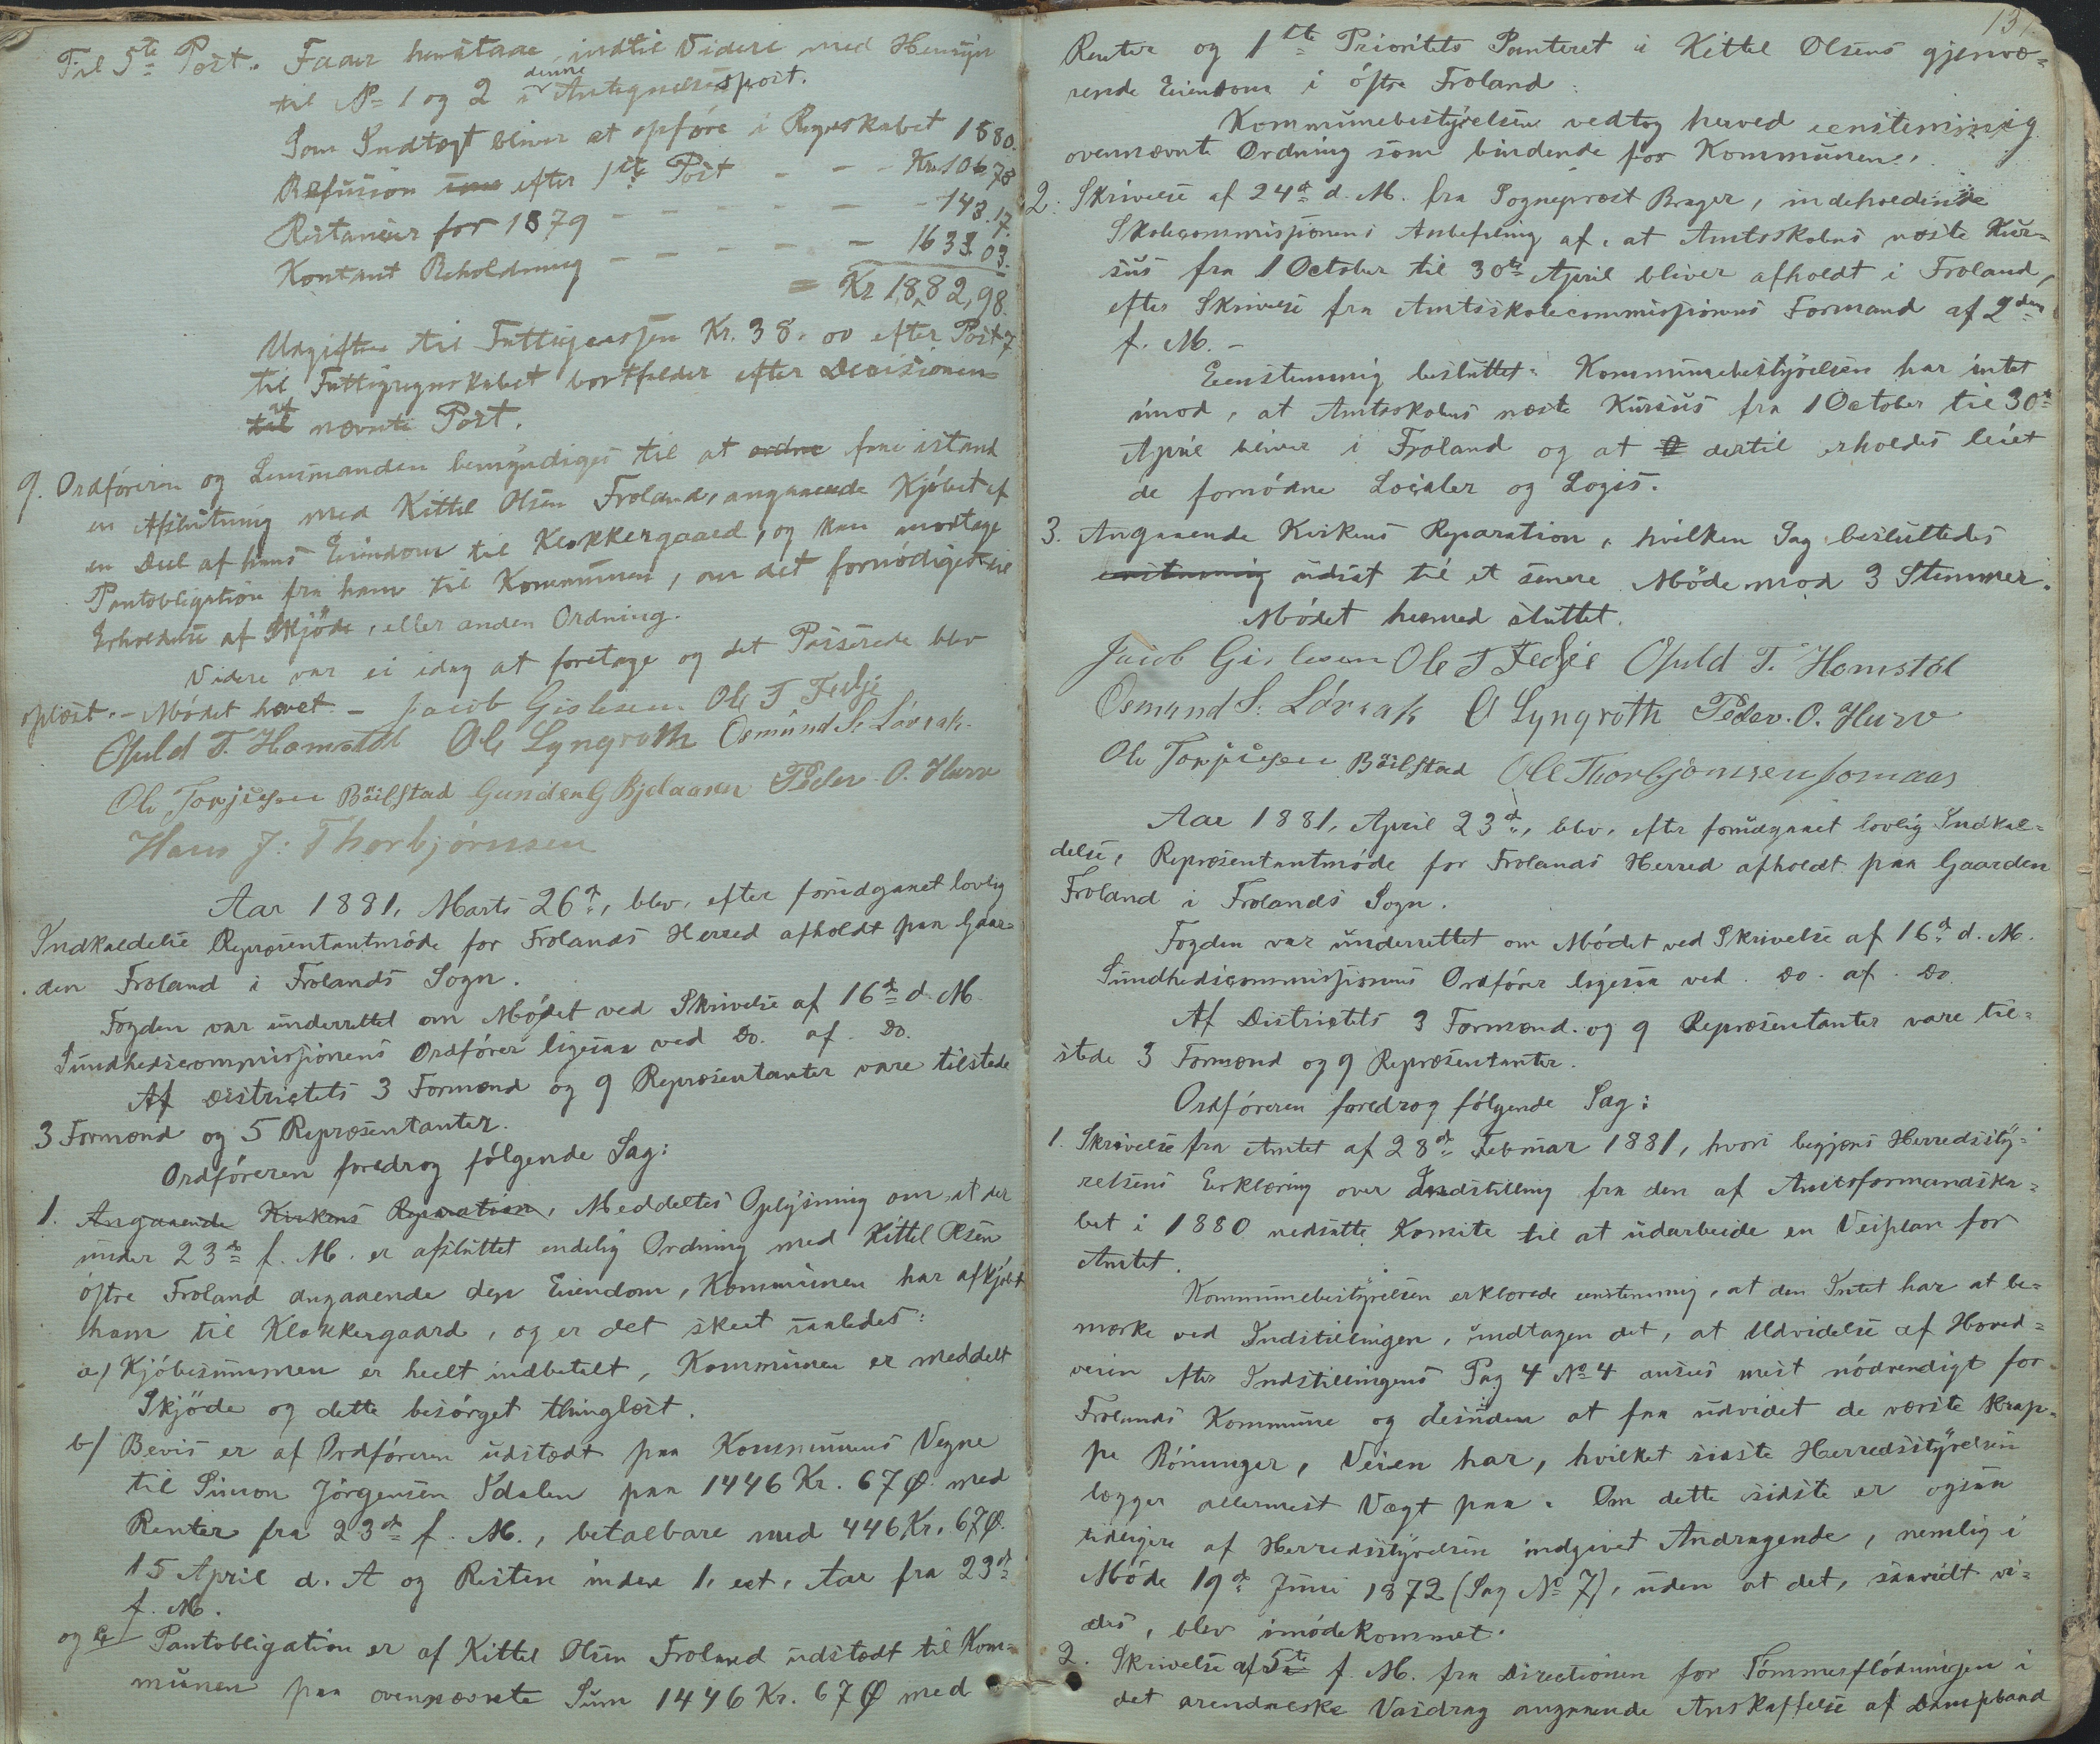 Til 5te Post. Faar henstaae indtil Videre med Hensyn
til No 1 og 2 i denne Antegnelsespost.
Som Indtægt bliver at opføre i Regnskabet 1880.
Refusion efter 1ste Post - - - Kr. 106,78
Restancer for 1879 - - - - - - 143.17.
Kontant Beholdning - - - - - 1633.03.
= Kr 1882,98.
Udgiften til Fattigcassen Kr. 38.00 efter Post 7
til Fattigregnskabet bortfalder efter Decisionen
af nævnte Post.
9. Ordføreren og Lensmanden bemyndiges til at ordne faae istand
en Afslutning med Kittel Olsen Froland, angaaende Kjøbet af
en Deel af hans Eiendom til Klokkergaard, og kan modtage
Pantobligation fra ham til Kommunen, om det fornødiges til
Erholdelse af Skjøde, eller anden Ordning.
Videre var ei idag at foretage og det Passerede blev
oplæst. - Mødet hævet. - Jacob Gislesen Ole T Fedje
Opuld T. Homstøl Ole Lyngroth Osmund S. Løvrak
Ole Torjusen Bøilstad Gunden G Bjelaasen Peder O. Hurv
Hans J: Thorbjørnsen
Aar 1881, Marts 26de, blev, efter forudgaaet lovlig
Indkaldelse Repræsentantmøde for Frolands Herred afholdt paa Gaar=
den Froland i Frolands Sogn.
Fogden var underrettet om Mødet ved Skrivelse af 16de d. M.
Sundhedscommissionens Ordfører ligesaa ved Do. af Do.
Af Districtets 3 Formænd og 9 Repræsentanter vare tilstede
3 Formænd og 5 Repræsentanter.
Ordføreren foredrog følgende Sag:
1. Angaaende Kirkens Reparation, Meddeltes Oplysning om at der
under 23de f. M. er afsluttet endelig Ordning med Kittel Olsen
østre Froland angaaende den Eiendom, Kommunen har afkjøbt
ham til Klokkergaard, og er det skeet saaledes:
a/ Kjøbesummen er heelt indbetalt, Kommunen er meddelt
Skjøde og dette besørget thinglæst.
b/ Bevis er af Ordføreren udstædt paa Kommunens Vegne
til Simon Jørgensen Ydalen paa 1446 Kr. 67 Ø. med
Renter fra 23de f. M., betalbare med 446 Kr. 67 Ø.
15 April d. A og Resten inden 1, eet, Aar fra 23de
f. M.
og c/ Pantobligation er af Kittel Olsen Froland udstædt til Kom=
munen paa ovennævnte Sum 1446 Kr. 67 Ø med
131.
Renter og 1ste Prioritets Panteret i Kittel Olsens gjenvæ=
rende Eiendom i østre Froland.
Kommunebestyrelsen vedtog herved eenstemmig
ovennævnte Ordning som bindende for Kommunen.
2. Skrivelse af 24de d. M. fra Sogneprest Brager, indeholdende
Skolecommissionens Anbefaling af, at Amtsskolens næste Kur=
sus fra 1 October til 30te April bliver afholdt i Froland,
efter Skrivelse fra Amtsskolecommissionens Formand af 2den
f. M. -
Eenstemmig besluttet: Kommunebestyrelsen har intet
imod, at Amtsskolens næste Kursus fra 1 October til 30te
April bliver i Froland og at dertil erholdes leiet
de fornødne Localer og Logis.
3. Angaaende Kirkens Reparation, hvilken Sag besluttedes
eenstemmig udsat til et senere Møde mod 3 Stemmer.
Mødet hermed sluttet.
Jacob Gislesen Ole T Fedje Opuld T. Homstøl
Osmund S. Løvrak O Lyngroth Peder. O. Hurv
Ole Torjusen Bøilstad Ole Thorbjørnsen Jomaas
Aar 1881, April 23de, blev, efter forudgaaet lovlig Indkal=
delse, Repræsentantmøde for Frolands Herred afholdt paa Gaarden
Froland i Frolands Sogn.
Fogden var underrettet om Mødet ved Skrivelse af 16de d. M.
Sundhedscommissionens Ordfører ligesaa ved Do. af Do.
Af Districtets 3 Formænd og 9 Repræsentanter vare til=
stede 3 Formænd og 9 Repræsentanter.
Ordføreren foredrog følgende Sag:
1. Skrivelse fra Amtet af 28de Februar 1881, hvori begjæres Herredssty=
relsens Erklæring over Indstilling fra den af Amtsformandska=
bet i 1880 nedsatte Komite til at udarbeide en Veiplan for
Amtet.
Kommunebestyrelsen erklærede eenstemmig, at den Intet har at be=
mærke ved Indstillingen, undtagen det, at Udvidelse af Hoved=
veien efter Indstillingens Pag 4 No 4 ansees mest nødvendigt for
Frolands Kommune og desuden at faa udvidet de værste krap=
pe Bøninger, Veien har, hvilket sidste Herredsstyrelsen
lægger allermest Vægt paa. Om dette sidste er ogsaa
tidligere af Herredsstyrelsen indgivet Andragende, nemlig i
Møde 19de Juni 1872 (Sag No 7), uden at det, saavidt vi=
des, blev imødekommet.
2. Skrivelse af 5te f. M. fra Directionen for Tømmerflødningen i
det arendalske Vasdrag angaaende Anskaffelse af Dampbaad